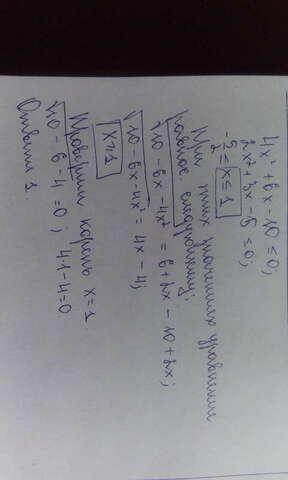 4x² + 6x - 10 ≤ 0;
2x² + 3x - 5 ≤ 0;
-5/2 ≤ x ≤ 1
При этих значениях уравнение
равно следующему:
√10 - 6x - 4x² = 6 + 2x - 10 + 2x;
√10 - 6x - 4x² = 4x - 4;
x ≥ 1
Проверим корень x = 1
√10 - 6 - 4 = 0; 4·1 - 4 = 0.
Ответ 1.